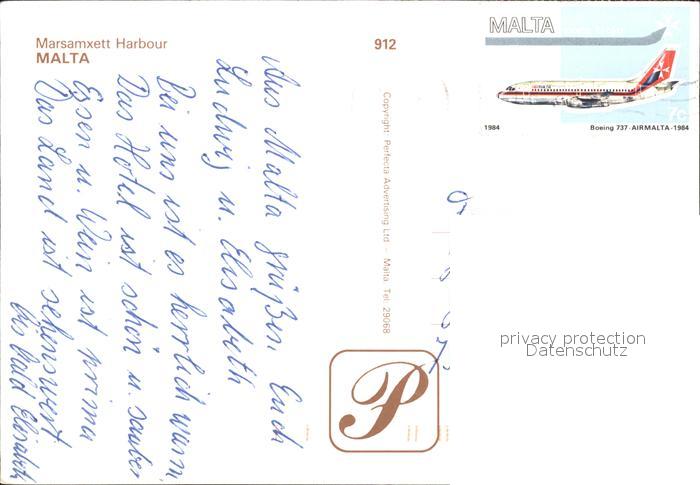 Marsamxett Harbour
MALTA
912
MALTA
7c
1984
Boeing 737 · AIRMALTA · 1984
Aus Malta grüßen Euch
Ludwig u. Elisabeth
Bei uns ist es herrlich warm,
Das Hotel ist schön u. sauber
Essen u. Wein ist prima
Das Land ist sehenswert
bis bald Elisabeth
Copyright Perfecta Advertising Ltd - Malta Tel: 29068
P
privacy protection
Datenschutz